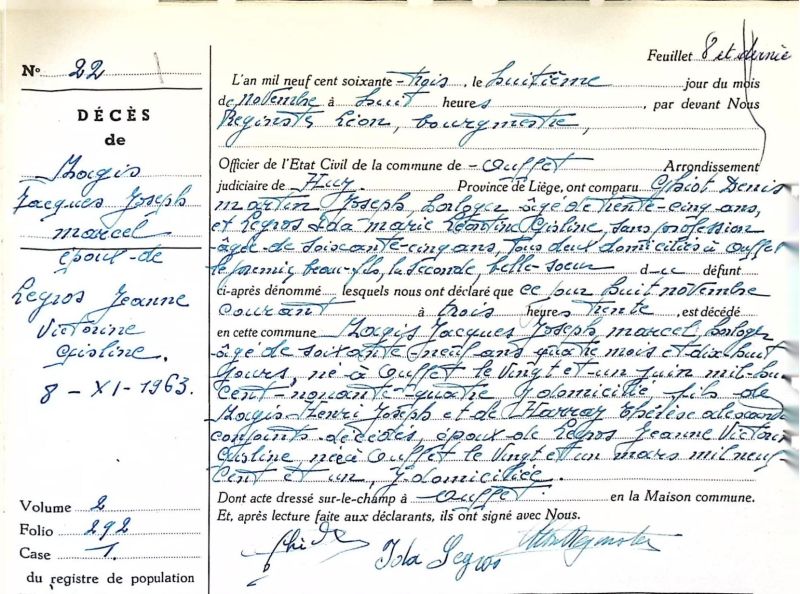 Feuillet 8 et dernie
N° 22
DÉCÈS
de
Magis
Jacques Joseph
Marcel
époux de
Legros Jeanne
Victorine
Gisline.
8 - XI - 1963.
Volume 2
Folio 292
Case 1.
du registre de population
L'an mil neuf cent soixante-trois, le huitième jour du mois
de novembre à huit heures, par devant Nous
Reginster Léon, bourgmestre,
Officier de l'Etat Civil de la commune de Ouffet Arrondissement
judiciaire de Huy Province de Liège, ont comparu Ghiot Denis
Martin Joseph, horloger âgé de trente-cinq ans,
et Legros Ida Marie Léontine Gisline, sans profession
âgée de soixante-cinq ans, tous deux domiciliés à Ouffet
le premier beau-fils, la seconde, belle-soeur du défunt
ci-après dénommé lesquels nous ont déclaré que ce jour huit novembre
courant à trois heures trente, est décédé
en cette commune Magis Jacques Joseph Marcel, horloger
âgé de soixante-neuf ans quatre mois et dix huit
jours, né à Ouffet le vingt et un juin mil-hu
cent-nonante-quatre y domicilié fils de
Magis Henri Joseph et de Harray Thérèse
conjoints décédés, époux de Legros Jeanne Victori
Gisline, née à Ouffet le vingt et un mars mil neuf
cent et un, y domiciliée.
Dont acte dressé sur-le-champ à Ouffet en la Maison commune.
Et, après lecture faite aux déclarants, ils ont signé avec Nous.
Ida Legros